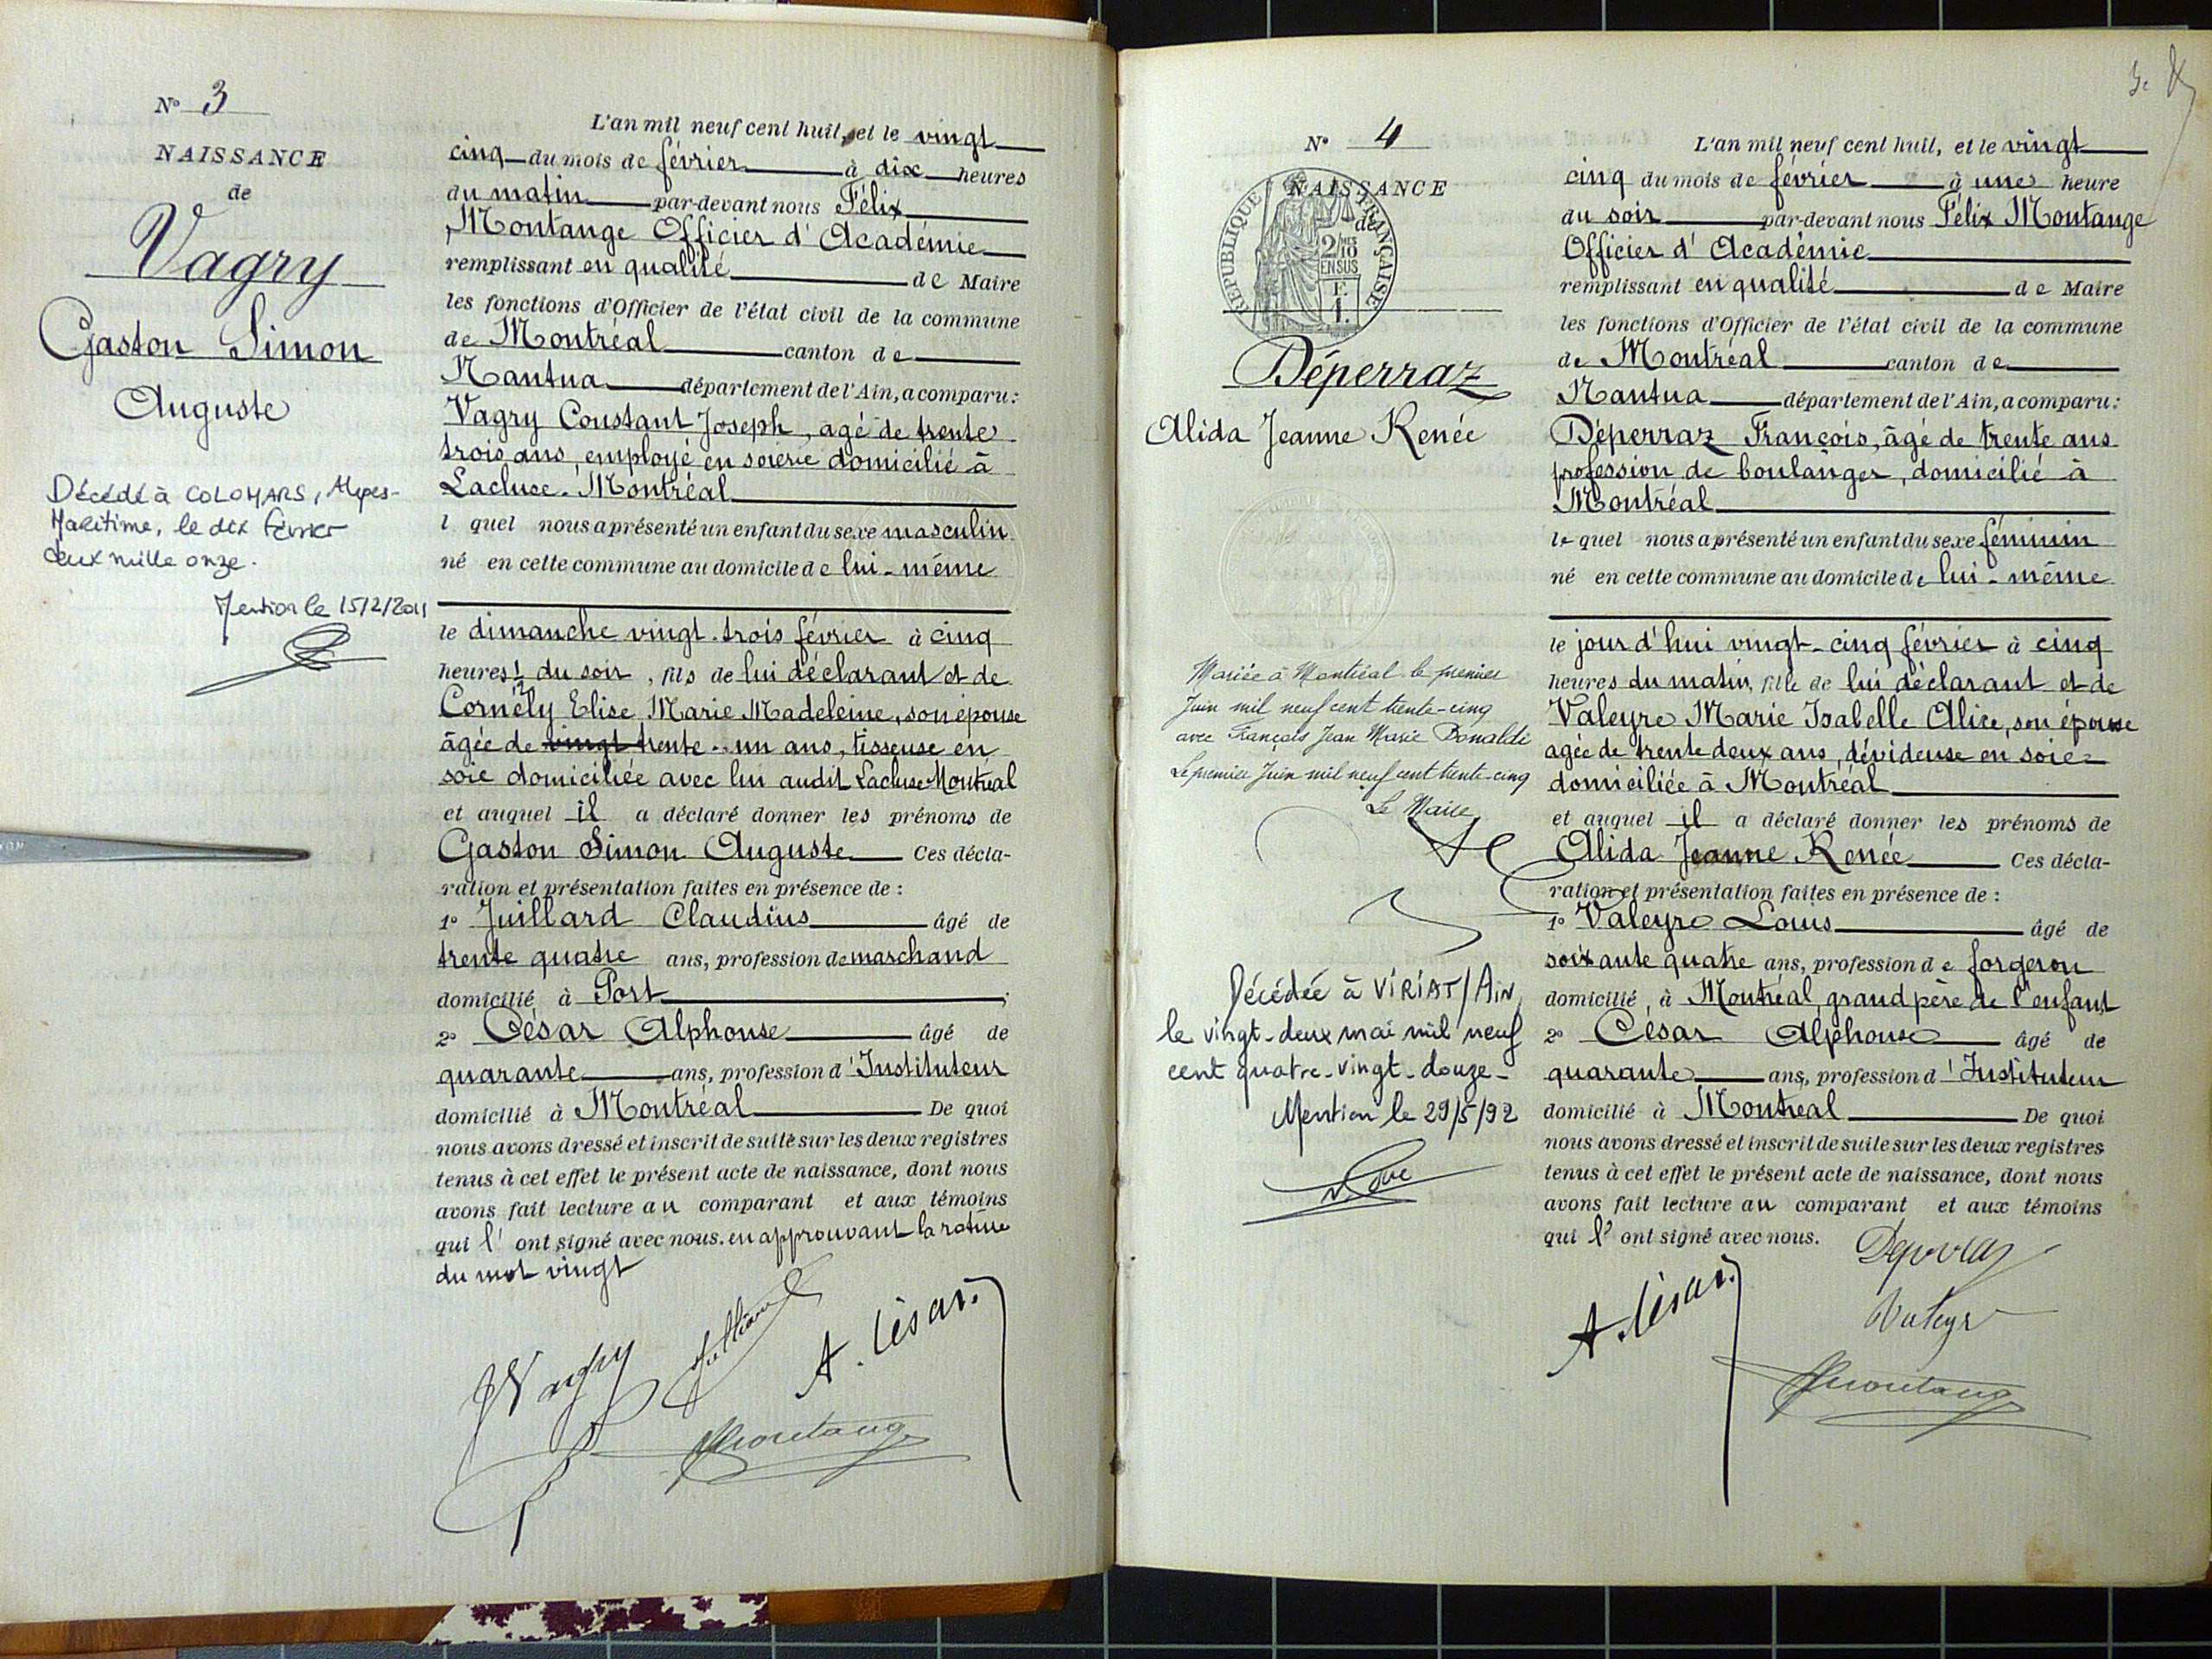 N° 3
NAISSANCE
de
Vagry
Gaston Simon
Auguste
Décédé à COLOMARS, Alpes-
Maritime, le dix Février
deux mille onze.
Mention le 15/2/2011
L'an mil neuf cent huit, et le vingt
cinq du mois de février à dix heures
du matin par-devant nous Félix
Montange Officier d'Académie
remplissant en qualité de Maire
les fonctions d'Officier de l'état civil de la commune
de Montréal canton de
Nantua département de l'Ain, a comparu:
Vagry Constant Joseph, âgé de trente
trois ans, employé en soierie domicilié à
Lacluse-Montréal
l quel nous a présenté un enfant du sexe masculin
né en cette commune au domicile de lui-même
le dimanche vingt-trois février à cinq
heures ½ du soir, fils de lui déclarant et de
Cornély Elise Marie Madeleine, son épouse
âgée de vingt trente-un ans, tisseuse en
soie domiciliée avec lui audit Lacluse-Montréal
et auquel il a déclaré donner les prénoms de
Gaston Simon Auguste Ces décla-
ration et présentation faites en présence de :
1° Juillard Claudius âgé de
trente quatre ans, profession de marchand
domicilié à Port ;
2° César Alphonse âgé de
quarante ans, profession d'Instituteur
domicilié à Montréal De quoi
nous avons dressé et inscrit de suite sur les deux registres
tenus à cet effet le présent acte de naissance, dont nous
avons fait lecture au comparant et aux témoins
qui l' ont signé avec nous. en approuvant la rature
du mot vingt
JVagry Juillard A. César
Montange
N° 4
NAISSANCE
de
RÉPUBLIQUE FRANÇAISE
2/10
EN SUS
Déperraz
Alida Jeanne Renée
Mariée à Montréal le premier
Juin mil neuf cent trente-cinq
avec François Jean Marie Donaldi
Le premier Juin mil neuf cent trente-cinq
Le Maire
Décédée à VIRIAT/AIN
le vingt-deux mai mil neuf
cent quatre-vingt-douze-
Mention le 29/5/92
L'an mil neuf cent huit, et le vingt
cinq du mois de février à une heure
du soir par-devant nous Félix Montange
Officier d'Académie
remplissant en qualité de Maire
les fonctions d'Officier de l'état civil de la commune
de Montréal canton de
Nantua département de l'Ain, a comparu:
Déperraz François, âgé de trente ans
profession de boulanger, domicilié à
Montréal
le quel nous a présenté un enfant du sexe féminin
né en cette commune au domicile de lui-même
le jour d'hui vingt-cinq février à cinq
heures du matin, fille de lui déclarant et de
Valeyre Marie Isabelle Alice, son épouse
agée de trente deux ans, dévideuse en soie
domiciliée à Montréal
et auquel il a déclaré donner les prénoms de
Alida Jeanne Renée Ces décla-
ration et présentation faites en présence de :
1° Valeyre Louis âgé de
soixante quatre ans, profession de forgeron
domicilié à Montréal, grand père de l'enfant
2° César Alphonse âgé de
quarante ans, profession d'Instituteur
domicilié à Montréal De quoi
nous avons dressé et inscrit de suite sur les deux registres
tenus à cet effet le présent acte de naissance, dont nous
avons fait lecture au comparant et aux témoins
qui l' ont signé avec nous.
A. César
Valeyre
Montange